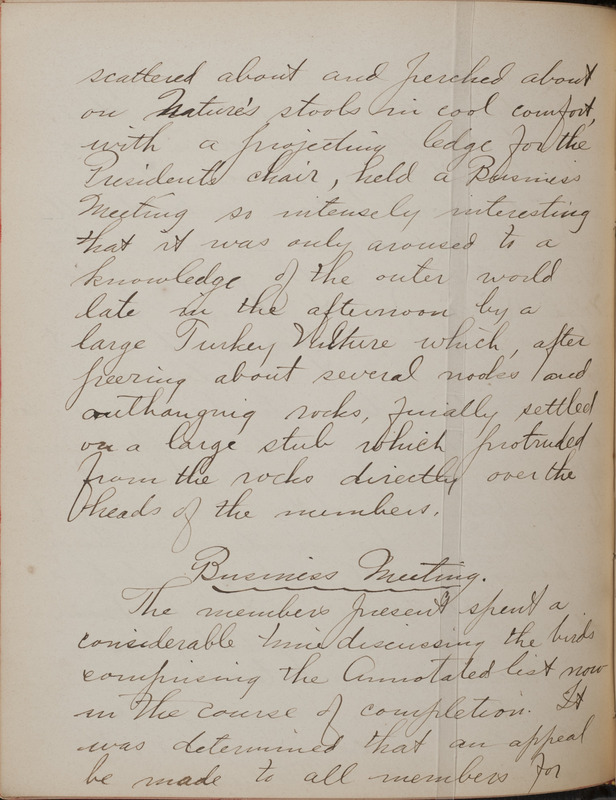 scattered about and perched about
on Nature's stools in cool comfort,
with a projecting ledge for the
President's chair, held a Business
Meeting so intensely interesting
that it was only aroused to a
knowledge of the outer world
late in the afternoon by a
large Turkey Vulture which, after
peering about several nooks and
outhanging rocks, finally settled
on a large stub which protruded
from the rocks directly over the
heads of the members.
Business Meeting.
The members present spent a
considerable time discussing the birds
comprising the Annotated list now
in the course of completion. It
was determined that an appeal
be made to all members for